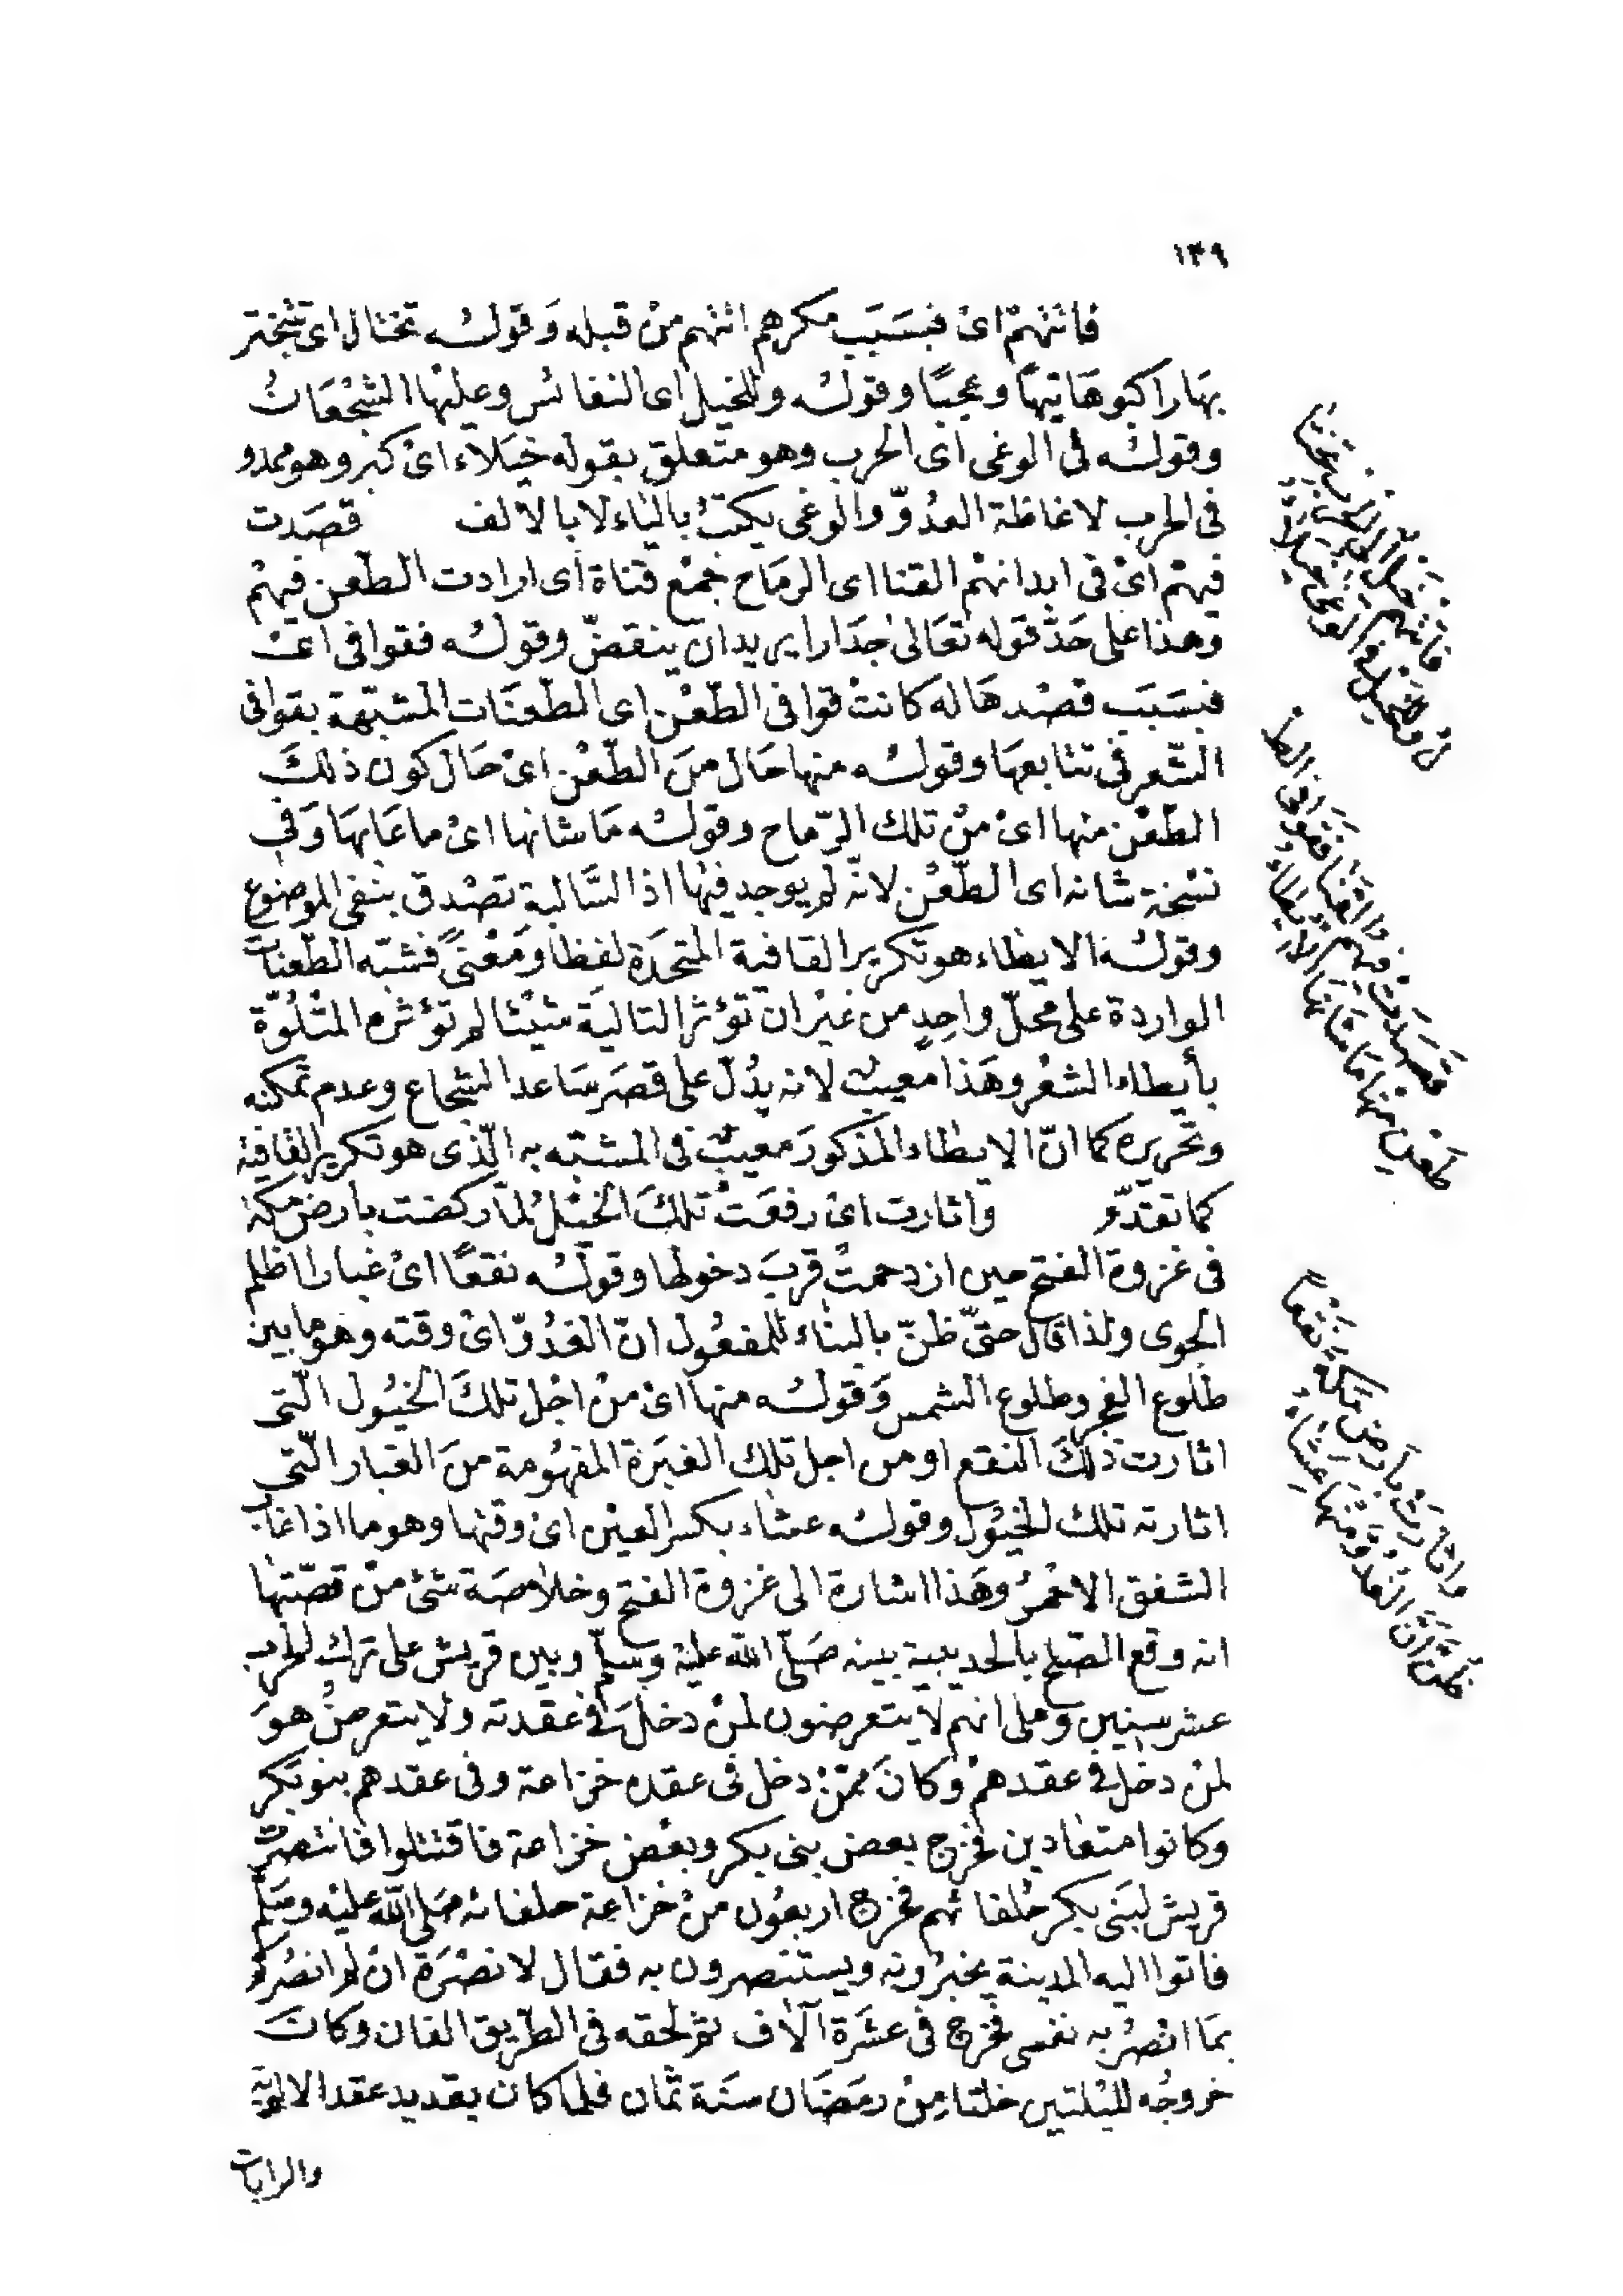 ١٣٩
فاتتهم اى فبسبب مكرهم اتتهم من قبله وقوله تختال اى تتبختر
بها راكبوها تيها وعجبا وقوله وللخيل اى النفائس وعليها الشجعان
وقوله فى الوغى اى الحرب وهو متعلق بقوله خيلاء اى كبر وهو ممدو
فى الحرب لاغاظة العدوّ والوغى يكتب بالياء لا بالالف قصدت
فيهم اى فى ابدانهم القنا اى الرماح جمع قناة اى ارادت الطعن فيهم
وهذا على حدّ قوله تعالى جدارا يريد ان ينقضّ وقوله فقوافى اى
فبسبب قصدها له كانت قوافى الطّعن اى الطعنات المشبّهة بقوافى
الشّعر فى تتابعها وقوله منها حال من الطّعن اى حال كون ذلك
الطّعن منها اى من تلك الرّماح وقوله ما شانها اى ما عابها وفى
نسخة شانه اى الطّعن لانّه لم يوجد فيها اذ السّالبة تصدق بنفى الموضوع
وقوله الايطاء هو تكرير القافية المتحدة لفظا ومعنًى فشبّه الطّعنات
الواردة على محلّ واحدٍ من غير ان تؤثر التالية شيئا لم تؤثره المتلوّة
بأيطاء الشعر وهذا معيب لانه يدلّ على قصر ساعد الشجاع وعدم تمكنه
وتحريره كما انّ الايطاء المذكور معيب فى المشبّه به الّذى هو تكرير القافية
كما تقدّم واثارت اى رفعت تلك الخيل لما ركضت بارض مكة
فى غزوة الفتح حين ازدحمت قرب دخولها وقوله نقعًا اى غبارا اظلم
الجوى ولذا قال حتّى ظنّ بالبناء للمفعول انّ الغدوّ اى وقته وهو ما بين
طلوع الفجر وطلوع الشمس وقوله منها اى من اجل تلك الخيول الّتى
اثارت ذلك النقع او من اجل تلك الغبرة المفهومة من الغبار الّتى
اثارته تلك الخيول وقوله عشاء بكسر العين اى وقتها وهو ما اذا غاب
الشفق الاحمر وهذا اشارة الى غزوة الفتح وخلاصة شئ من قصّتها
انه وقع الصّلح بالحديبية بينه صلّى الله عليه وسلّم وبين قريش على ترك الحرب
عشر سنين وعلى انهم لا يتعرضون لمن دخل فى عقدته ولا يتعرض هو
لمن دخل فى عقدهم وكان ممّن دخل فى عقده خزاعة وفى عقدهم بنو بكر
وكانوا متعادين فخرج بعض بنى بكر وبعض خزاعة فاقتتلوا فانتصرت
قريش لبنى بكر حلفائهم فخرج اربعون من خزاعة حلفائه صلى الله عليه وسلم
فاتوا اليه المدينة يخبرونه ويستنصرون به فقال لا نصرة ان لم انصركم
بما انصر به نفسى فخرج فى عشرة آلاف ثم لحقه فى الطّريق الفان وكان
خروجه لليلتين خلتا من رمضان سنة ثمان فلما كان بقديد عقد الالوية
والرايات
فاتتهم خيل الى الحرب تختا
ل وللخيل فى الوغى خيلاء
قصدت فيهم القنا فقوافى الط
طعن منها ما شانها الايطاء
واثارت بأرض مكة نقعًا
ظنّ انّ الغدوّ منها عشاء